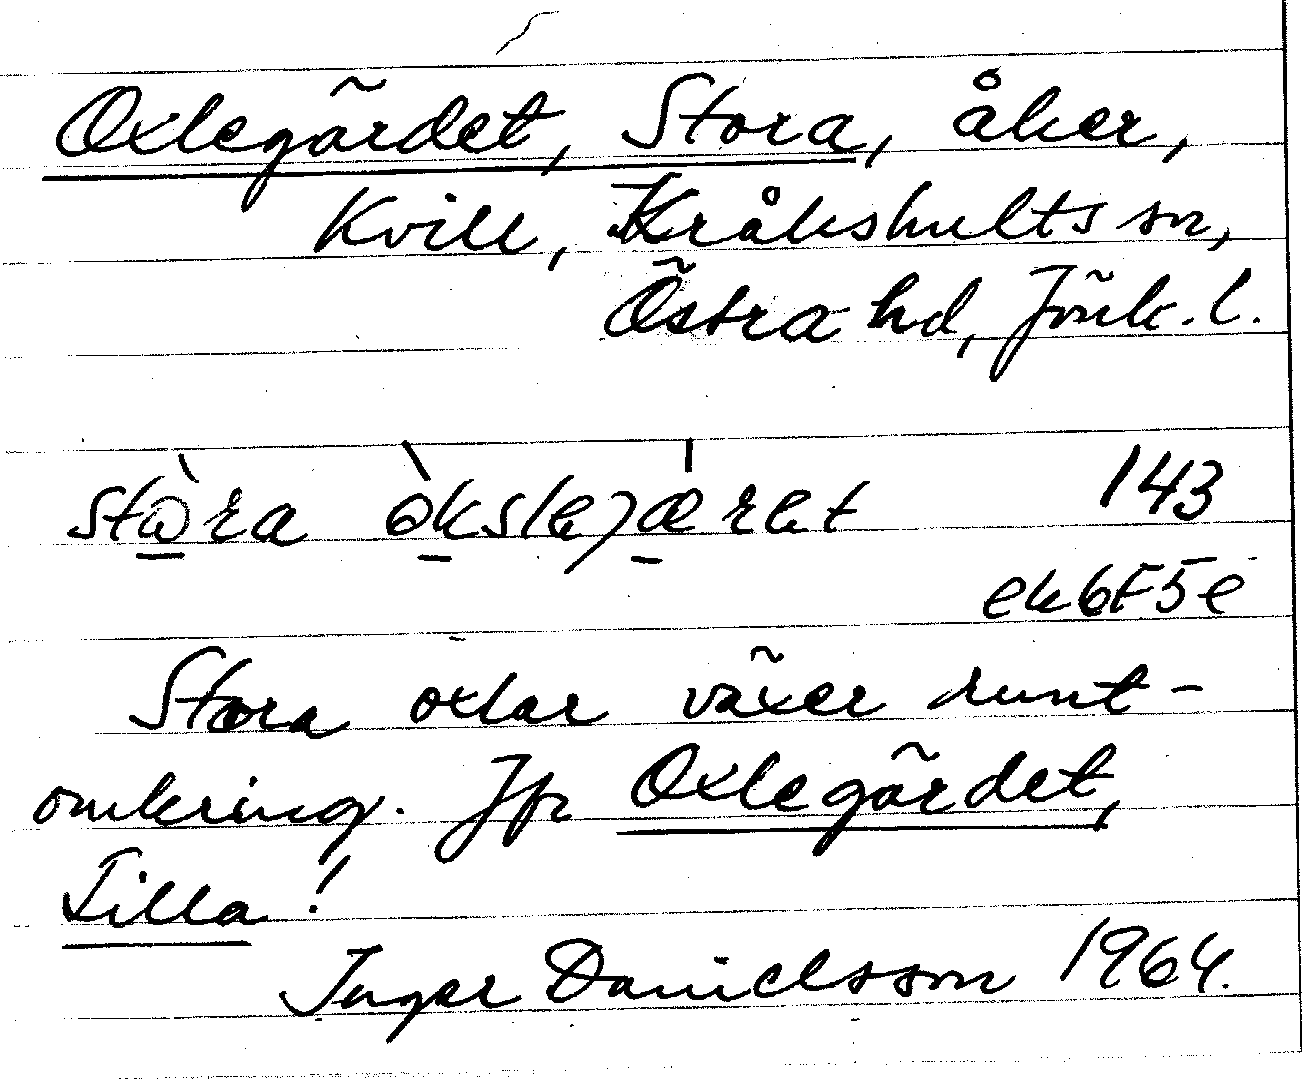 Oxlegärdet, Stora, åker,
Kvill, Kråkshults sn,
Östra hd, Jönk. l.
stὼra òks(le)jæ̍ret 143
ek6F5e
Stora oxlar växer runt-
omkring. Jfr Oxlegärdet,
Lilla!
Inger Danielsson 1964.